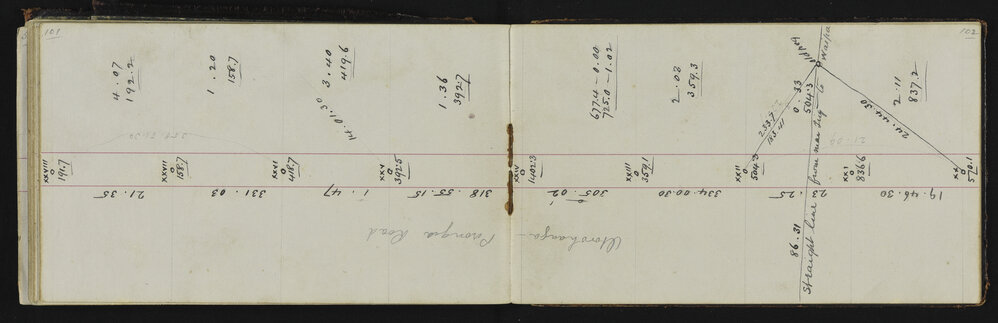 101
4.07
192.2
1.20
158.7
3.40
419.6
14.01.30
1.36
392.7
XXVIII
0
191.7
XXVII
0
158.7
XXVI
0
418.7
XXV
0
392.5
21.35
331.03
1.47
318.55.15
Pirongia Road
102
677.4-0.00
725.0-1.02
2.03
359.3
0.33
504.3
Waipa
24.44.30
2.11
837.2
XXIV
0
1402.3
XXIII
0
359.1
XXII
0
504.3
XXI
0
836.6
XX
0
570.1
305.02
334.00.30
.25
23
19.46.30
86.31
Straight line from near Trig to
Otorohanga -